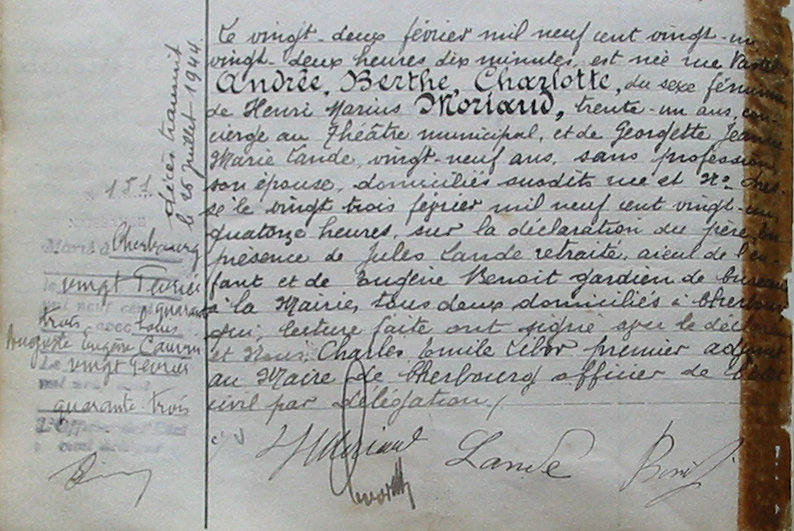 décès transmit
le 26 juillet 1944.
151
Marié à Cherbourg
le vingt Février
mil neuf cent quarante
trois avec Louis
Auguste Eugène Cauvin
Le vingt Février
mil neuf cent
quarante-trois
L'Officier de l'Etat
Le vingt-deux février mil neuf cent vingt-un
vingt-deux heures dix minutes, est née rue
Andrée, Berthe, Charlotte, du sexe féminin
de Henri Marius Moriaud, trente-un ans, con-
cierge au Théâtre municipal, et de Georgette Jeanne
Marie Lande, vingt-neuf ans, sans profession
son épouse, domiciliés susdits rue et No. Dres-
sé le vingt trois février mil neuf cent vingt-un
quatorze heures, sur la déclaration du père, en
présence de Jules Lande retraité, aïeul de l'en-
fant et de Eugène Benoit gardien de bureau
à la Mairie, tous deux domiciliés à Cherbourg
qui, lecture faite ont signé avec le déclarant
et Nous, Charles Emile premier adjoint
au Maire de Cherbourg officier de l'état
civil par délégation./.
HMoriaud Lande Benoit